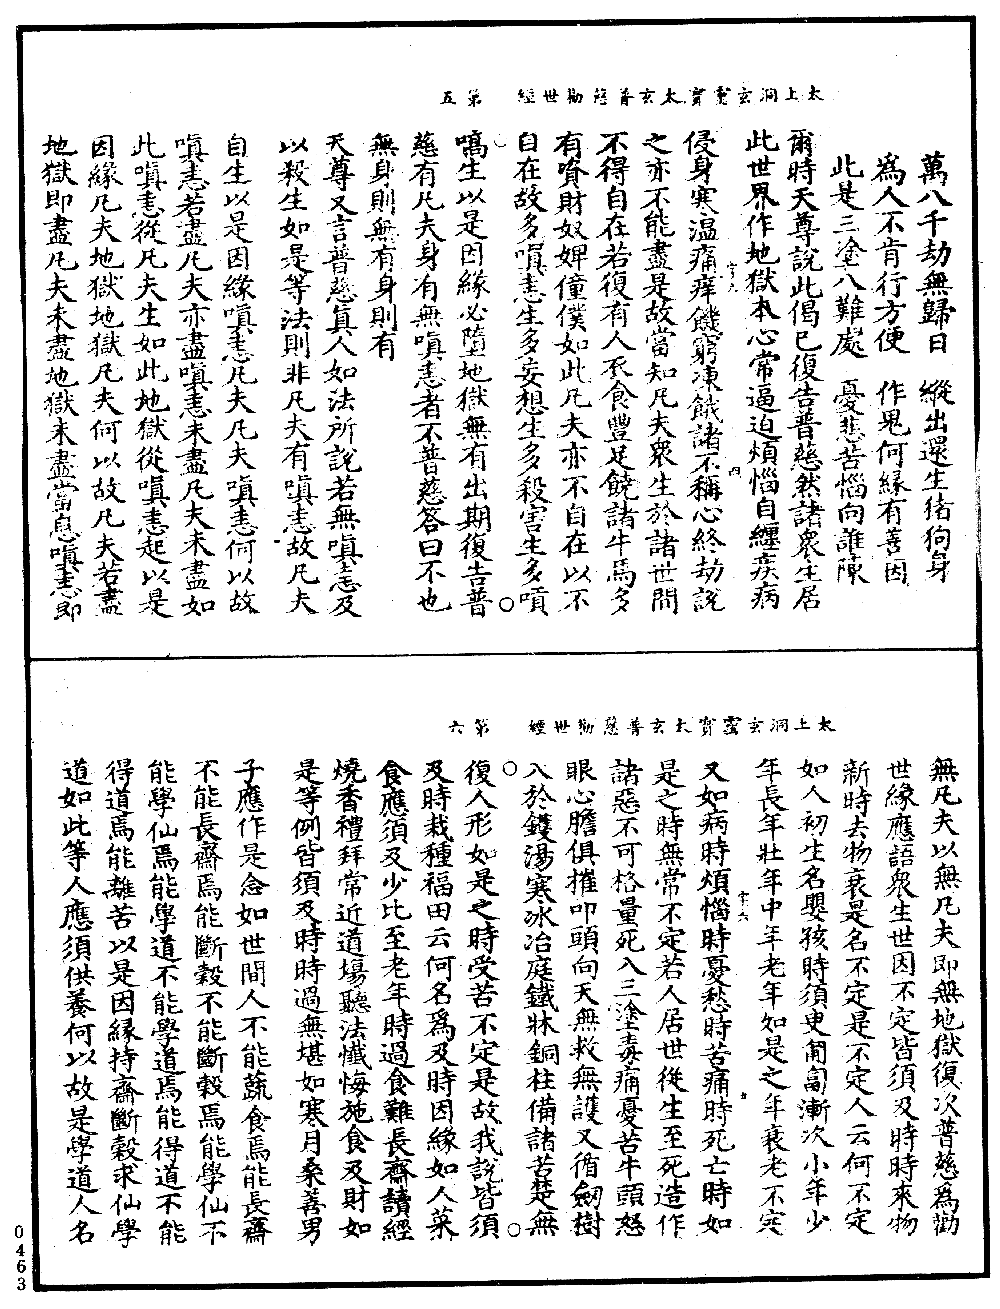 太上洞玄靈寶太玄普慈勸世經　第五
萬八千劫無歸日　縱出還生猪狗身
為人不肯行方便　作鬼何緣有善因
此是三塗八難處　憂悲苦惱向誰陳
爾時天尊說此偈已復告普慈然諸衆生居
此世界作地獄本心常逼迫煩惱自纏疾病
侵身寒温痛痒饑窮凍餓諸不稱心終劫說
之亦不能盡是故當知凡夫衆生於諸世間
不得自在若復有人衣食豐足饒諸牛馬多
有資財奴婢僮僕如此凡夫亦不自在以不
自在故多嗔恚生多妄想生多殺害生多嗊
嗃生以是因緣必墮地獄無有出期復告普
慈有凡夫身有無嗔恚者不普慈答曰不也
無身則無有身則有
天尊又言普慈真人如法所說若無嗔恚及
以殺生如是等法則非凡夫有嗔恚故凡夫
自生以是因緣嗔恚凡夫凡夫嗔恚何以故
嗔恚若盡凡夫亦盡嗔恚未盡凡夫未盡如
此嗔恚從凡夫生如此地獄從嗔恚起以是
因緣凡夫地獄地獄凡夫何以故凡夫若盡
地獄即盡凡夫未盡地獄未盡當息嗔恚即
太上洞玄靈寶太玄普慈勸世經　第六
無凡夫以無凡夫即無地獄復次普慈為勸
世緣應語衆生世因不定皆須及時時來物
新時去物衰是名不定是不定人云何不定
如人初生名嬰孩時須臾匍匐漸次小年少
年長年壯年中年老年如是之年衰老不定
又如病時煩惱時憂愁時苦痛時死亡時如
是之時無常不定若人居世從生至死造作
諸惡不可格量死入三塗毒痛憂苦牛頭怒
眼心膽俱摧叩頭向天無救無護又循劒樹
入於鑊湯寒冰冶庭鐵牀銅柱備諸苦楚無
復人形如是之時受苦不定是故我說皆須
及時栽種福田云何名為及時因緣如人菜
食應須及少比至老年時過食難長齋讀經
燒香禮拜常近道場聽法懺悔施食及財如
是等例皆須及時時過無堪如寒月桑善男
子應作是念如世間人不能蔬食焉能長齋
不能長齋焉能斷穀不能斷穀焉能學仙不
能學仙焉能學道不能學道焉能得道不能
得道焉能離苦以是因緣持齋斷穀求仙學
道如此等人應須供養何以故是學道人名
0463